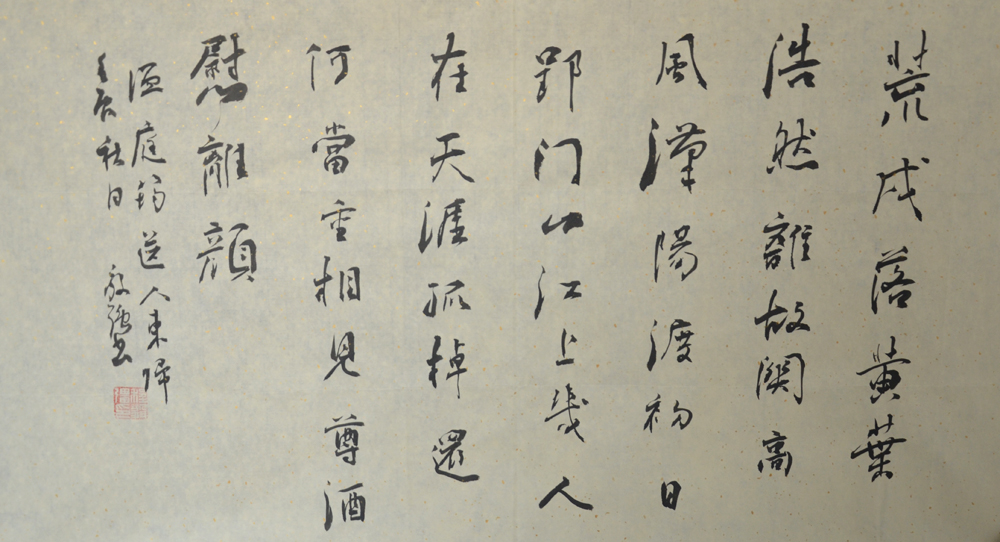 荒戍落黃葉
浩然離故關高
風漢陽渡初日
郢门山江上幾人
在天涯孤棹還
何當重相見尊酒
慰離顏
溫庭筠送人東歸
壬辰秋日